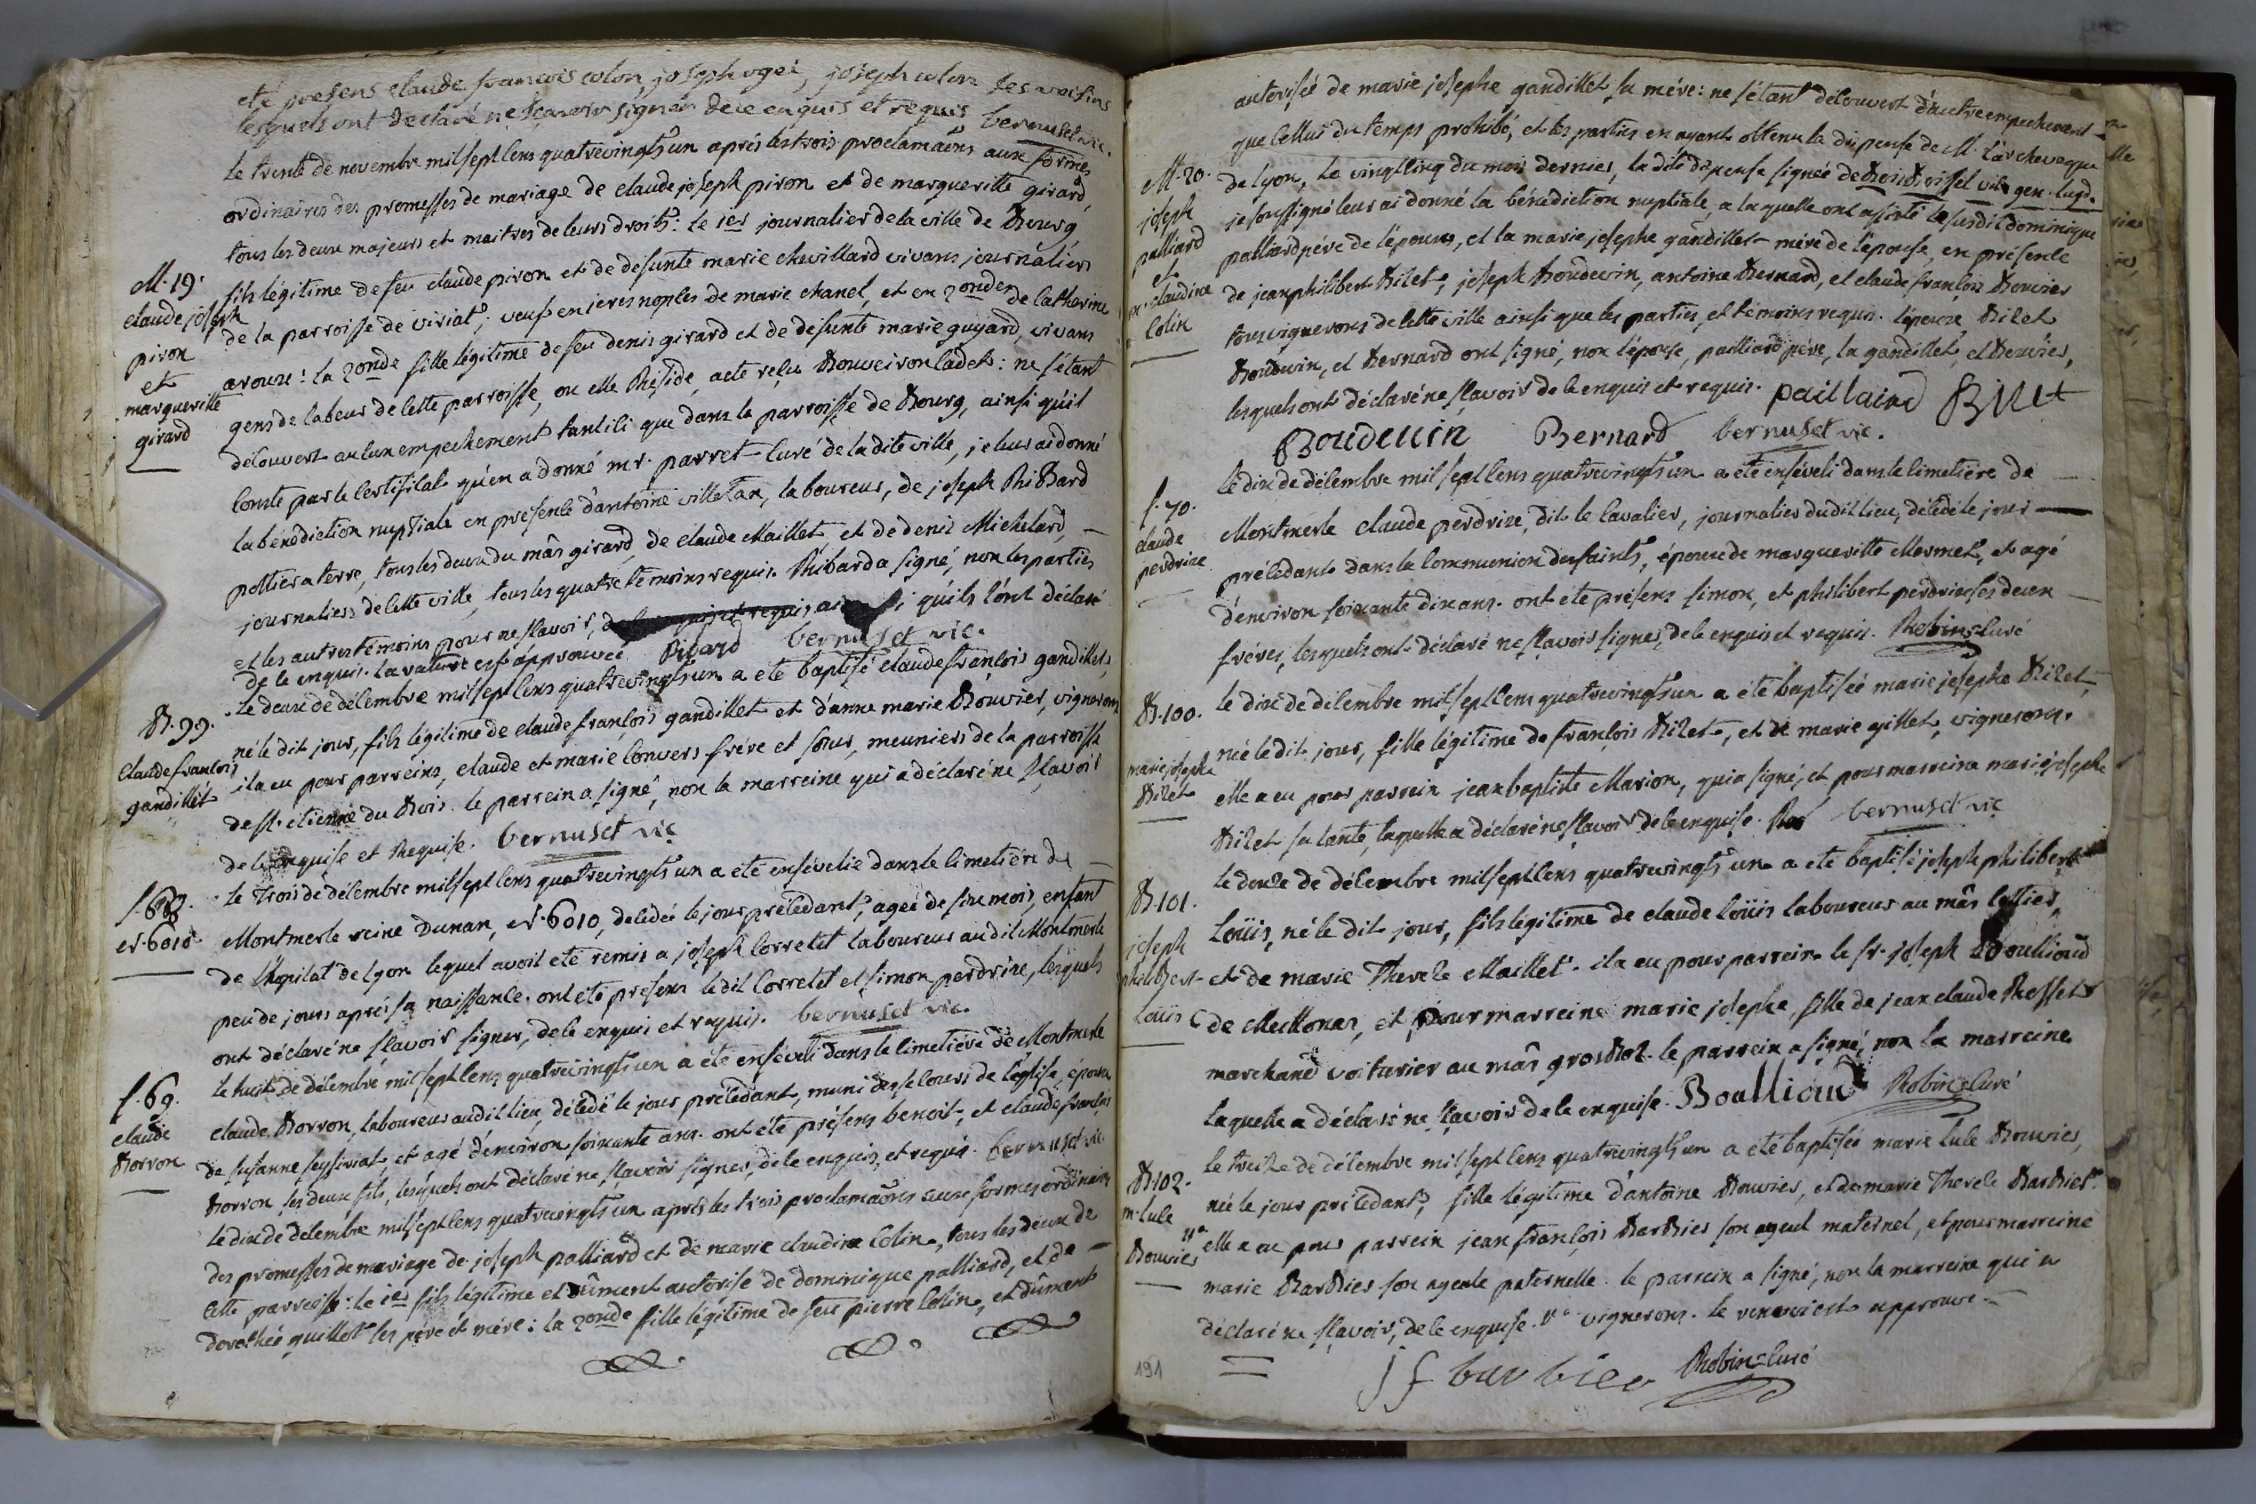 eté presens claude francois colon, joseph ogei, joseph colon ses voisins
lesquels ont declaré ne sçavoir signer de ce enquis et requis bernuset vic.
le trente de novembre mil sept cens quatrevingts un aprés les trois proclamãons aux formes
ordinaires des promesses de mariage de claude joseph piron et de margueritte girard,
tous les deux majeurs et maitres de leurs droits: le 1er journalier de la ville de Bourg
M. 19.
claude joseph
piron
et
margueritte
girard
fils légitime de feu claude piron et de defunte marie chevillard vivans journaliers
de la parroisse de viriat; veuf en 1eres noples de marie chanel, et en 2ondes de catherine
avoux: la 2onde fille légitime de feu denis girard et de defunte marie guyard, vivans
gens de labeur de cette parroisse, ou elle Reside, acte reçu Bouveiron cadet: ne s'étant
découvert aucun empechement tant ici que dans la parroisse de Bourg, ainsi qu'il
conste par le certificat qu'en a donné mr. parret curé de la dite ville, je leurs ai donné
la bénédiction nuptiale en présence d'antoine villetan, laboureur, de joseph Ribard
pottier a terre, tous les deux du mâs girard, de claude Maillet et de denis Michelard,
journaliers de cette ville, tous les quatre témoins requis. Ribard a signé, non les parties
et les autres témoins pour ne sçavoir, qu'ils l'ont déclaré
de ce enquis. la rature est approuvée Ribard bernuset vic.
B. 99.
claude francois
gandillet
Le deux de décembre mil sept cens quatrevingts un a eté baptisé claude françois gandillet,
né le dit jour, fils légitime de claude françois gandillet et d'anne marie Bouvier, vignerons
il a eu pour parreins, claude et marie convers frére et sœur, meuniers de la parroisse
de st. etienne du Bois. le parrein a signé, non la marreine qui a déclaré ne sçavoir
de ce enquise et Requise. bernuset vic
s. 68.
et. 6010
Le trois de décembre mil sept cens quatrevingts un a eté ensévelie dans le cimetière de
Montmerle reine Dunan, et. 6010, décédée le jour précédant, agée de six mois, enfant
de l'hopital de lyon lequel avoit eté remis a joseph Corretet laboureur au dit Montmerle
peu de jours aprés sa naissance. ont eté présens le dit Corretet et simon perdrize, lesquels
ont déclaré ne sçavoir signer, de ce enquis et requis. bernuset vic.
s. 69.
claude
Borron
Le huit de décembre mil sept cens quatrevingts un a eté enséveli dans le cimetiére de Montmerle
claude Borron, laboureur au dit lieu, décédé le jour précédant, muni des secours de l'église, époux
de susanne seyssiriat, et agé d'environ soixante ans. ont eté présens benoit, et claude françois
Borron ses deux fils, lesquels ont déclaré ne sçavoir signer, de ce enquis, et requis. bernuset vic.
Le dix de décembre mil sept cens quatrevingts un aprés les trois proclamãons aux formes ordinaires
des promesses de mariage de joseph palliard et de marie claudine Colin, tous les deux de
cette parroisse: le 1er fils légitime et dûment autorisé de dominique palliard, et de
dorothée guillot ses pére et mére: la 2onde fille légitime de feu pierre Colin, et dûment
autorisée de marie josephe gandillet sa mére: ne s'étant découvert d'autre empechement
que cellui du temps prohibé, et les parties en ayant obtenu la dispense de M. l'archeveque
M. 20.
joseph
palliard
et
m. claudine
Colin
de lyon, le vingt cinq du mois dernier, la dite dispense signée de vic gen. lugd.
je soussigné leurs ai donné la bénédiction nuptiale, a laquelle ont assisté le susdit dominique
palliard pére de l'époux, et la marie josephe gandillet mére de l'épouse, en présence
de jean philibert Bizet, joseph Boudouin, antoine Bernard, et claude françois Bouvier
tous vignerons de cette ville ainsi que les parties, et témoins requis. l'époux, Bizet
Boudouin, et Bernard ont signé, non l'épouse, palliard pére, la gandillet, et Bouvier,
lesquels ont déclaré ne sçavoir de ce enquis et requis. paillaird Bizet
Boudeuin Bernard bernuset vic.
s. 70.
claude
perdrize
Le dix de décembre mil sept cens quatrevingts un a eté enséveli dans le cimetière de
Montmerle claude perdrize, dit le Cavalier, journalier du dit lieu, décédé le jour
précédant dans la communion des saints, époux de margueritte Mermet, et agé
d'environ soixante dix ans. ont eté présens simon, et philibert perdrize ses deux
fréres, lesquels ont déclaré ne sçavoir signer, de ce enquis et requis. Robin curé
B. 100.
marie josephe
Bizet
Le dix de décembre mil sept cens quatrevingts un a eté baptisée marie josephe Bizet,
née le dit jour, fille légitime de françois Bizet, et de marie gillet, vignerons.
elle a eu pour parrein jean baptiste Marion, qui a signé, et pour marreine marie josephe
Bizet sa tante, laquelle a déclaré ne sçavoir de ce enquise. bernuset vic
B. 101.
joseph
philibert
Loüis
Le douze de décembre mil sept cens quatrevingts un a eté baptisé joseph philibert
Loüis, né le dit jour, fils légitime de claude loüis laboureur au mâs cellier,
et de marie Therese Maillet. il a eu pour parrein le sr. joseph Boullioud
de Meillonas, et pour marreine marie josephe, fille de jean claude Rosset
marchand voiturier au mâs gros Boz. le parrein a signé, non la marreine
laquelle a déclaré ne sçavoir de ce enquise. Boullioud Robin curé
B. 102.
m. luce
Bouvier
Le treize de décembre mil sept cens quatrevingts un a eté baptisée marie luce Bouvier,
née le jour précédant, fille légitime d'antoine Bouvier, et de marie Therese Barbier.
elle a eu pour parrein jean françois Barbier son ayeul maternel, et pour marreine
marie Barbier son ayeule paternelle. le parrein a signé, non la marreine qui a
déclaré ne sçavoir, de ce enquise. vignerons. le renvoi est approuvé
j f barbier Robin curé
191